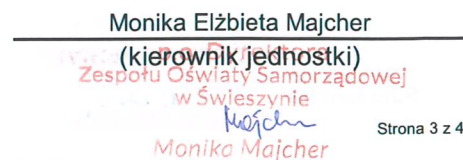 Monika Elżbieta Majcher
(kierownik jednostki)
p.o. Dyrektora
Zespołu Oświaty Samorządowej
w Świeszynie
Majcher
Strona 3 z 4
Monika Majcher